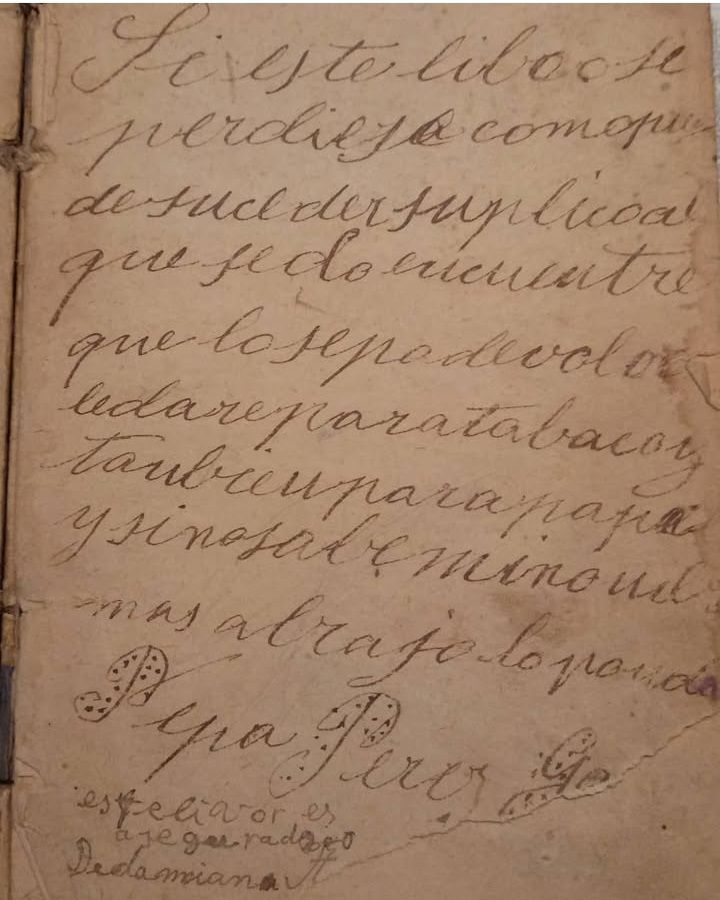 Si este libro se
perdiese como pue
de suceder suplico al
que se lo encuentre
que lo sepa devolver
le dare para tabaco y
tanbien para papel
y si no sabe mi nonb
mas abrajo lo pondo
Pepa Perez
es
asegurad
De damiana